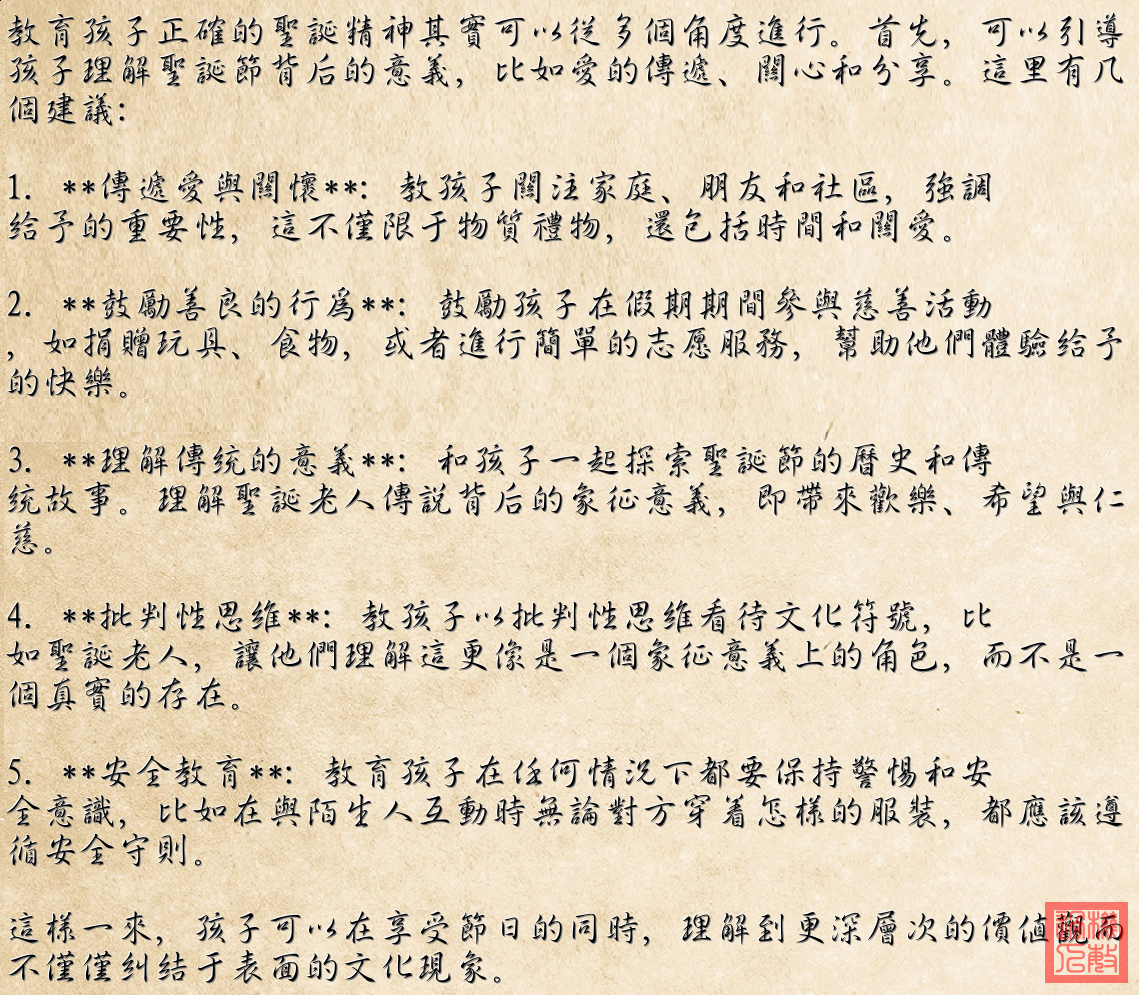 教育孩子正確的聖誕精神其實可以從多個角度進行。首先，可以引導
孩子理解聖誕節背后的意義，比如愛的傳遞、關心和分享。這里有几
個建議：
1. **傳遞愛與關懷**：教孩子關注家庭、朋友和社區，強調
給予的重要性，這不僅限于物質禮物，還包括時間和關愛。
2. **鼓勵善良的行爲**：鼓勵孩子在假期期間參與慈善活動
，如捐贈玩具、食物，或者進行簡單的志愿服務，幫助他們體驗給予
的快樂。
3. **理解傳统的意義**：和孩子一起探索聖誕節的曆史和傳
统故事。理解聖誕老人傳説背后的象征意義，即帶來歡樂、希望與仁
慈。
4. **批判性思维**：教孩子以批判性思维看待文化符號，比
如聖誕老人，讓他們理解這更像是一個象征意義上的角色，而不是一
個真實的存在。
5. **安全教育**：教育孩子在任何情況下都要保持警惕和安
全意識，比如在與陌生人互動時無論對方穿着怎樣的服裝，都應該遵
循安全守則。
這樣一來，孩子可以在享受節日的同時，理解到更深層次的價值觀而
不僅僅纠结于表面的文化現象。